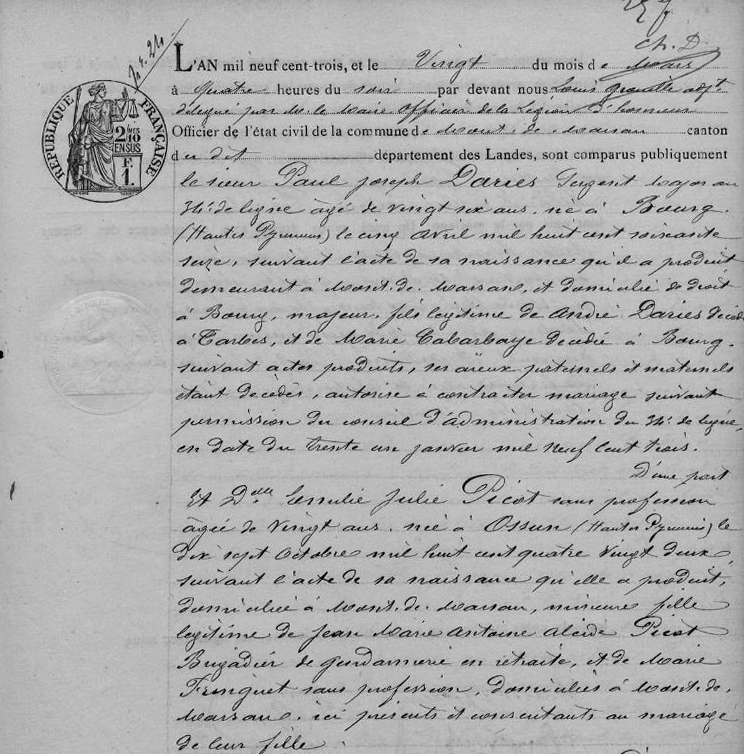 Ch. D.
L'AN mil neuf cent-trois, et le Vingt du mois de Mars
à quatre heures du soir par devant nous Louis adjt
délégué par M. le Maire Officier de la Légion d'honneur
Officier de l'état civil de la commune de Mont-de-Marsan canton
du dit département des Landes, sont comparus publiquement
RÉPUBLIQUE FRANÇAISE
2/10 EN SUS
1 F.
le sieur Paul Joseph Dariès Sergent Major au
34e de ligne âgé de vingt six ans, né à Bourg
(Hautes Pyrénées) le cinq Avril mil huit cent soixante
seize, suivant l'acte de sa naissance qu'il a produit
demeurant à Mont-de-Marsan, et domicilié de droit
à Bourg, majeur, fils légitime de André Dariès décédé
à Tarbes, et de Marie Cabarbaye décédée à Bourg,
suivant actes produits, ses aïeux paternels et maternels
étant décédés, autorisé à contracter mariage suivant
permission du conseil d'administration du 34e de ligne,
en date du trente un janvier mil neuf cent trois.
D'une part
Et Delle Emilie Julie Picot sans profession
âgée de vingt ans, née à Ossun (Hautes Pyrénées) le
dix sept Octobre mil huit cent quatre vingt deux,
suivant l'acte de sa naissance qu'elle a produit,
domiciliée à Mont-de-Marsan, mineure fille
légitime de Jean Marie Antoine Alcide Picot
Brigadier de gendarmerie en retraite, et de Marie
sans profession, domiciliés à Mont-de-
Marsan, ici présents et consentants au mariage
de leur fille.